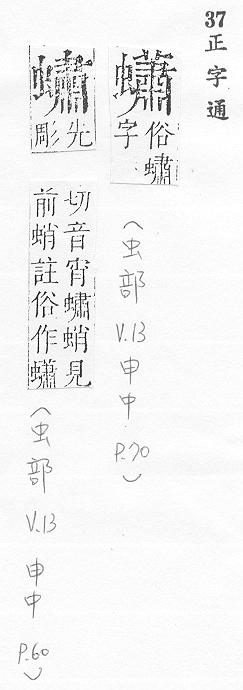 37正字通
蠨
俗蟰
字
(虫部 V.13 申中 P.70)
蟰
先
彫
切音宵蟰蛸見
前蛸註俗作蠨
(虫部 V.13 申中 P.60)